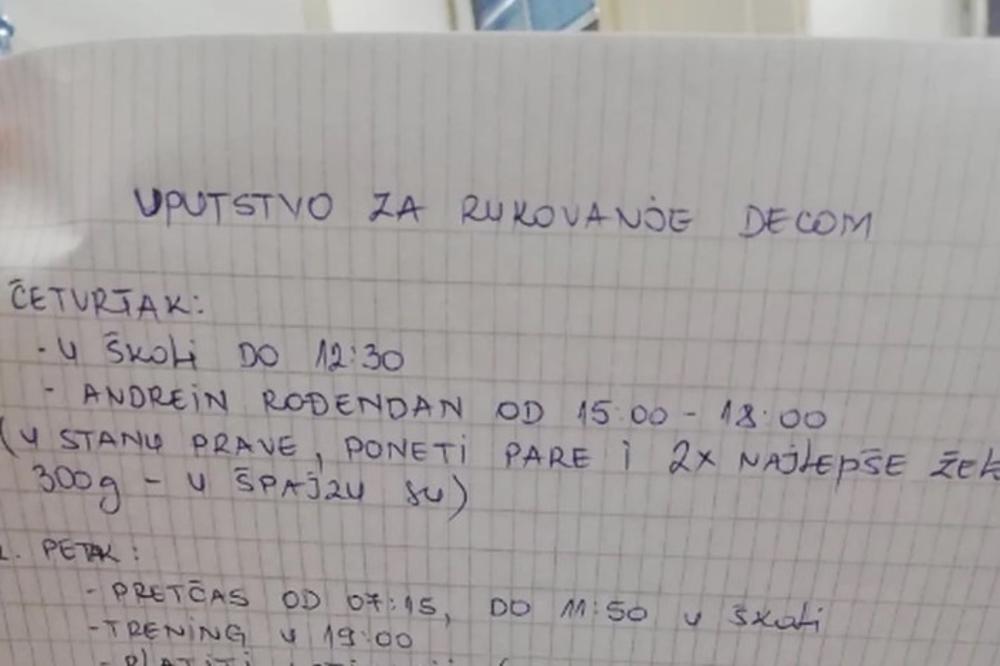 UPUTSTVO ZA RUKOVANJE DECOM
ČETVRTAK:
- U ŠKOLI DO 12:30
- ANDREIN ROĐENDAN OD 15:00 - 18:00
(U STANU PRAVE, PONETI PARE I 2X NAJLEPŠE
300g - U ŠPAJZU SU)
2. PETAK:
- PRETČAS OD 07:15, DO 11:50 U ŠKOLI
- TRENING U 19:00